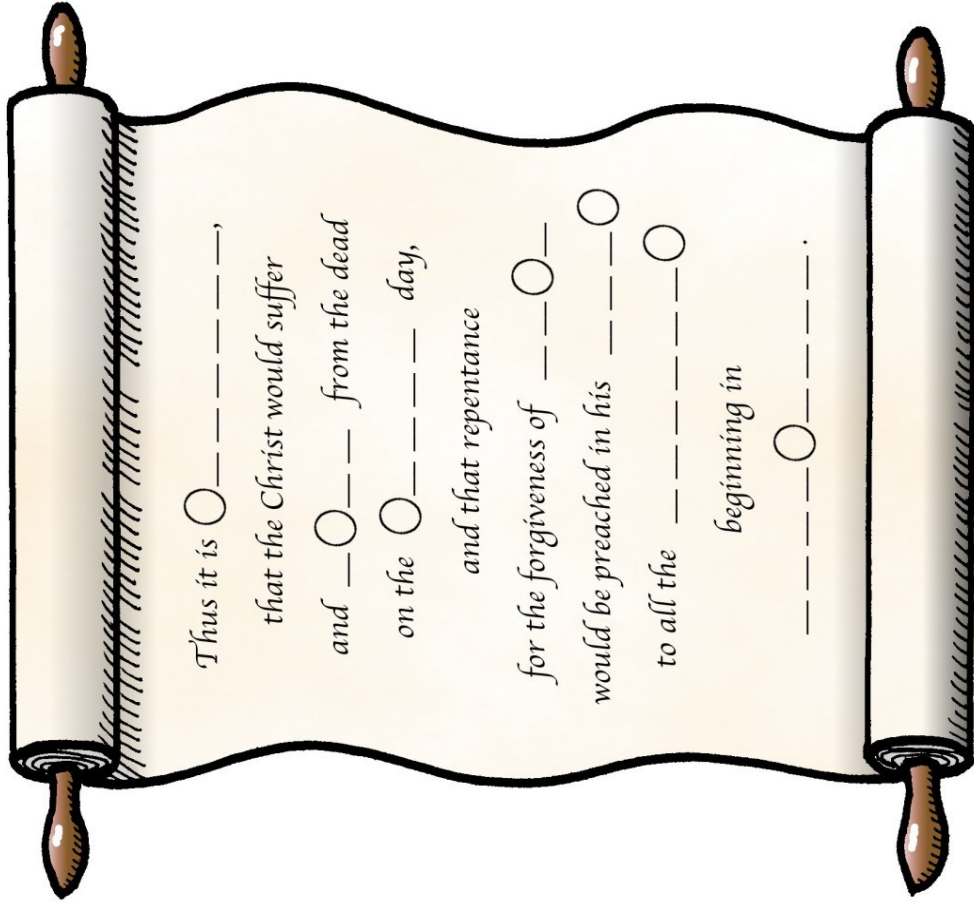 Thus it is ◯ _ _ _ _ _ _,
that the Christ would suffer
and _ ◯ _ _ from the dead
on the ◯ _ _ _ _ day,
and that repentance
for the forgiveness of _ _ ◯ _
would be preached in his _ _ _ ◯
to all the _ _ _ _ _ _ ◯
beginning in
_ _ _ _ ◯ _ _ _ _.